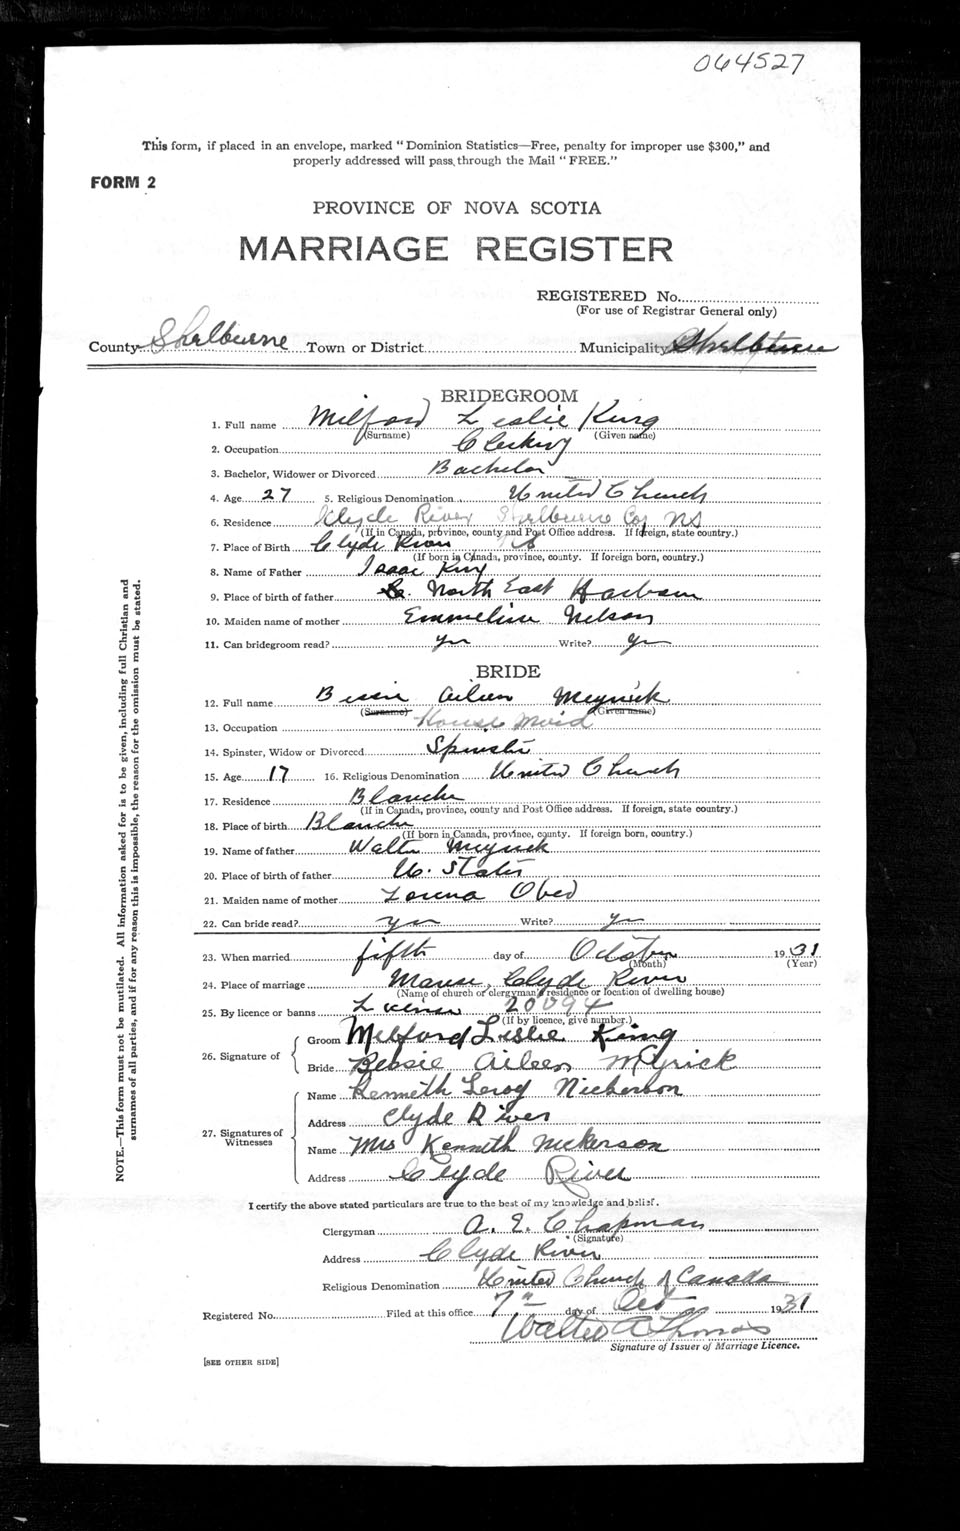 064527
This form, if placed in an envelope, marked "Dominion Statistics—Free, penalty for improper use $300," and
properly addressed will pass through the Mail "FREE."
FORM 2
PROVINCE OF NOVA SCOTIA
MARRIAGE REGISTER
REGISTERED No.
(For use of Registrar General only)
County Shelburne Town or District Municipality Shelburne
BRIDEGROOM
1. Full name Milford Leslie King
(Surname) (Given name)
2. Occupation
3. Bachelor, Widower or Divorced Bachelor
4. Age 27 5. Religious Denomination United Church
6. Residence Clyde River Shelburne Co NS
(If in Canada, province, county and Post Office address. If foreign, state country.)
7. Place of Birth Clyde River
(If born in Canada, province, county. If foreign born, country.)
8. Name of Father Isaac King
9. Place of birth of father North East Harbour
10. Maiden name of mother Emmeline Nelson
11. Can bridegroom read? yes Write? yes
BRIDE
12. Full name Bessie Aileen Meyrick
(Surname) (Given name)
13. Occupation House Maid
14. Spinster, Widow or Divorced Spinster
15. Age 17 16. Religious Denomination United Church
17. Residence Blanche
(If in Canada, province, county and Post Office address. If foreign, state country.)
18. Place of birth Blanche
(If born in Canada, province, county. If foreign born, country.)
19. Name of father Walter Meyrick
20. Place of birth of father U. States
21. Maiden name of mother Lorena Obed
22. Can bride read? yes Write? yes
23. When married fifth day of October 1931
(Month) (Year)
24. Place of marriage Manse, Clyde River
(Name of church or clergyman's residence or location of dwelling house)
25. By licence or banns License 20094
(If by licence, give number.)
26. Signature of
Groom Milford Leslie King
Bride Bessie Aileen McGrick
27. Signatures of Witnesses
Name Kenneth Leroy Nickerson
Address Clyde River
Name Mrs Kenneth Nickerson
Address Clyde River
I certify the above stated particulars are true to the best of my knowledge and belief.
Clergyman A. E. Chapman
(Signature)
Address Clyde River
Religious Denomination United Church of Canada
Registered No. Filed at this office 7th day of Oct 1931
Walter A Thomas
Signature of Issuer of Marriage Licence.
[SEE OTHER SIDE]
NOTE.—This form must not be mutilated. All information asked for is to be given, including full Christian and
surnames of all parties, and if for any reason this is impossible, the reason for the omission must be stated.